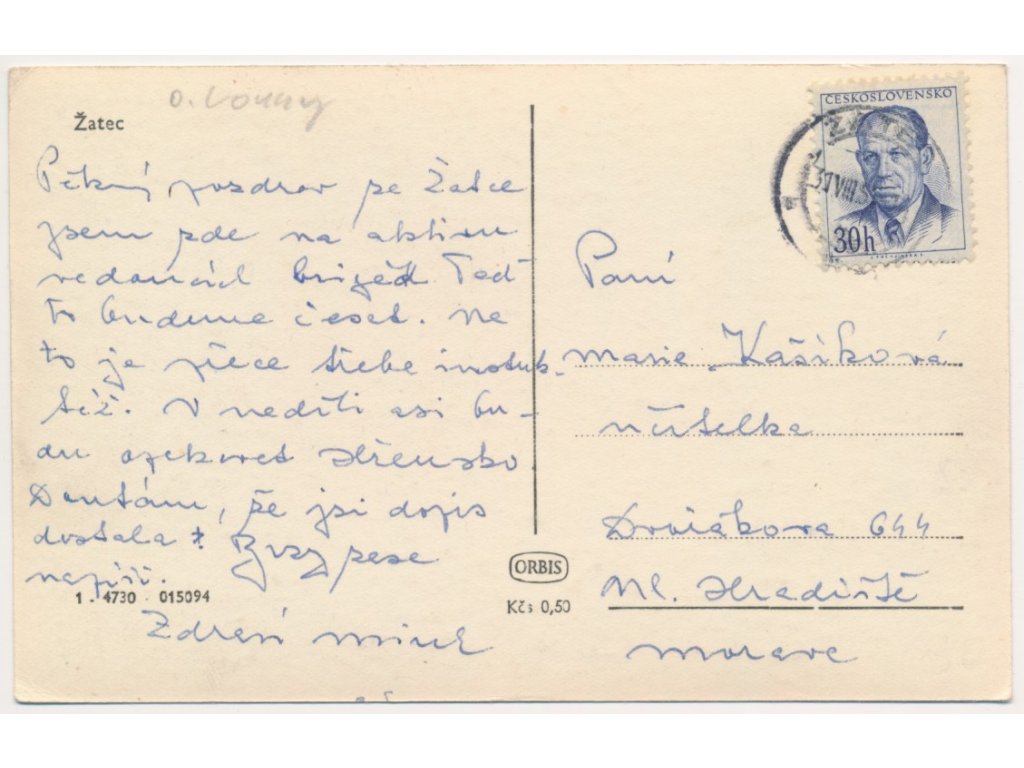 o. Louny
Žatec
Pěkný pozdrav ze Žatce
jsem zde na aktivu
vedoucích brigád Teď
to budeme česat. Na
to je přece třeba instruk-
táž. V neděli asi bu-
du Hřensko
Doufám, že jsi dopis
dostala? Brzy zase
napiš.
Zdraví Mirek
1 - 4730 - 015094
ORBIS
Kčs 0,50
ČESKOSLOVENSKO
30h
ŽATEC
31.VIII.5
Paní
Marie Kašíková
učitelka
Dvořákova 644
Ml. Hradiště
Morava